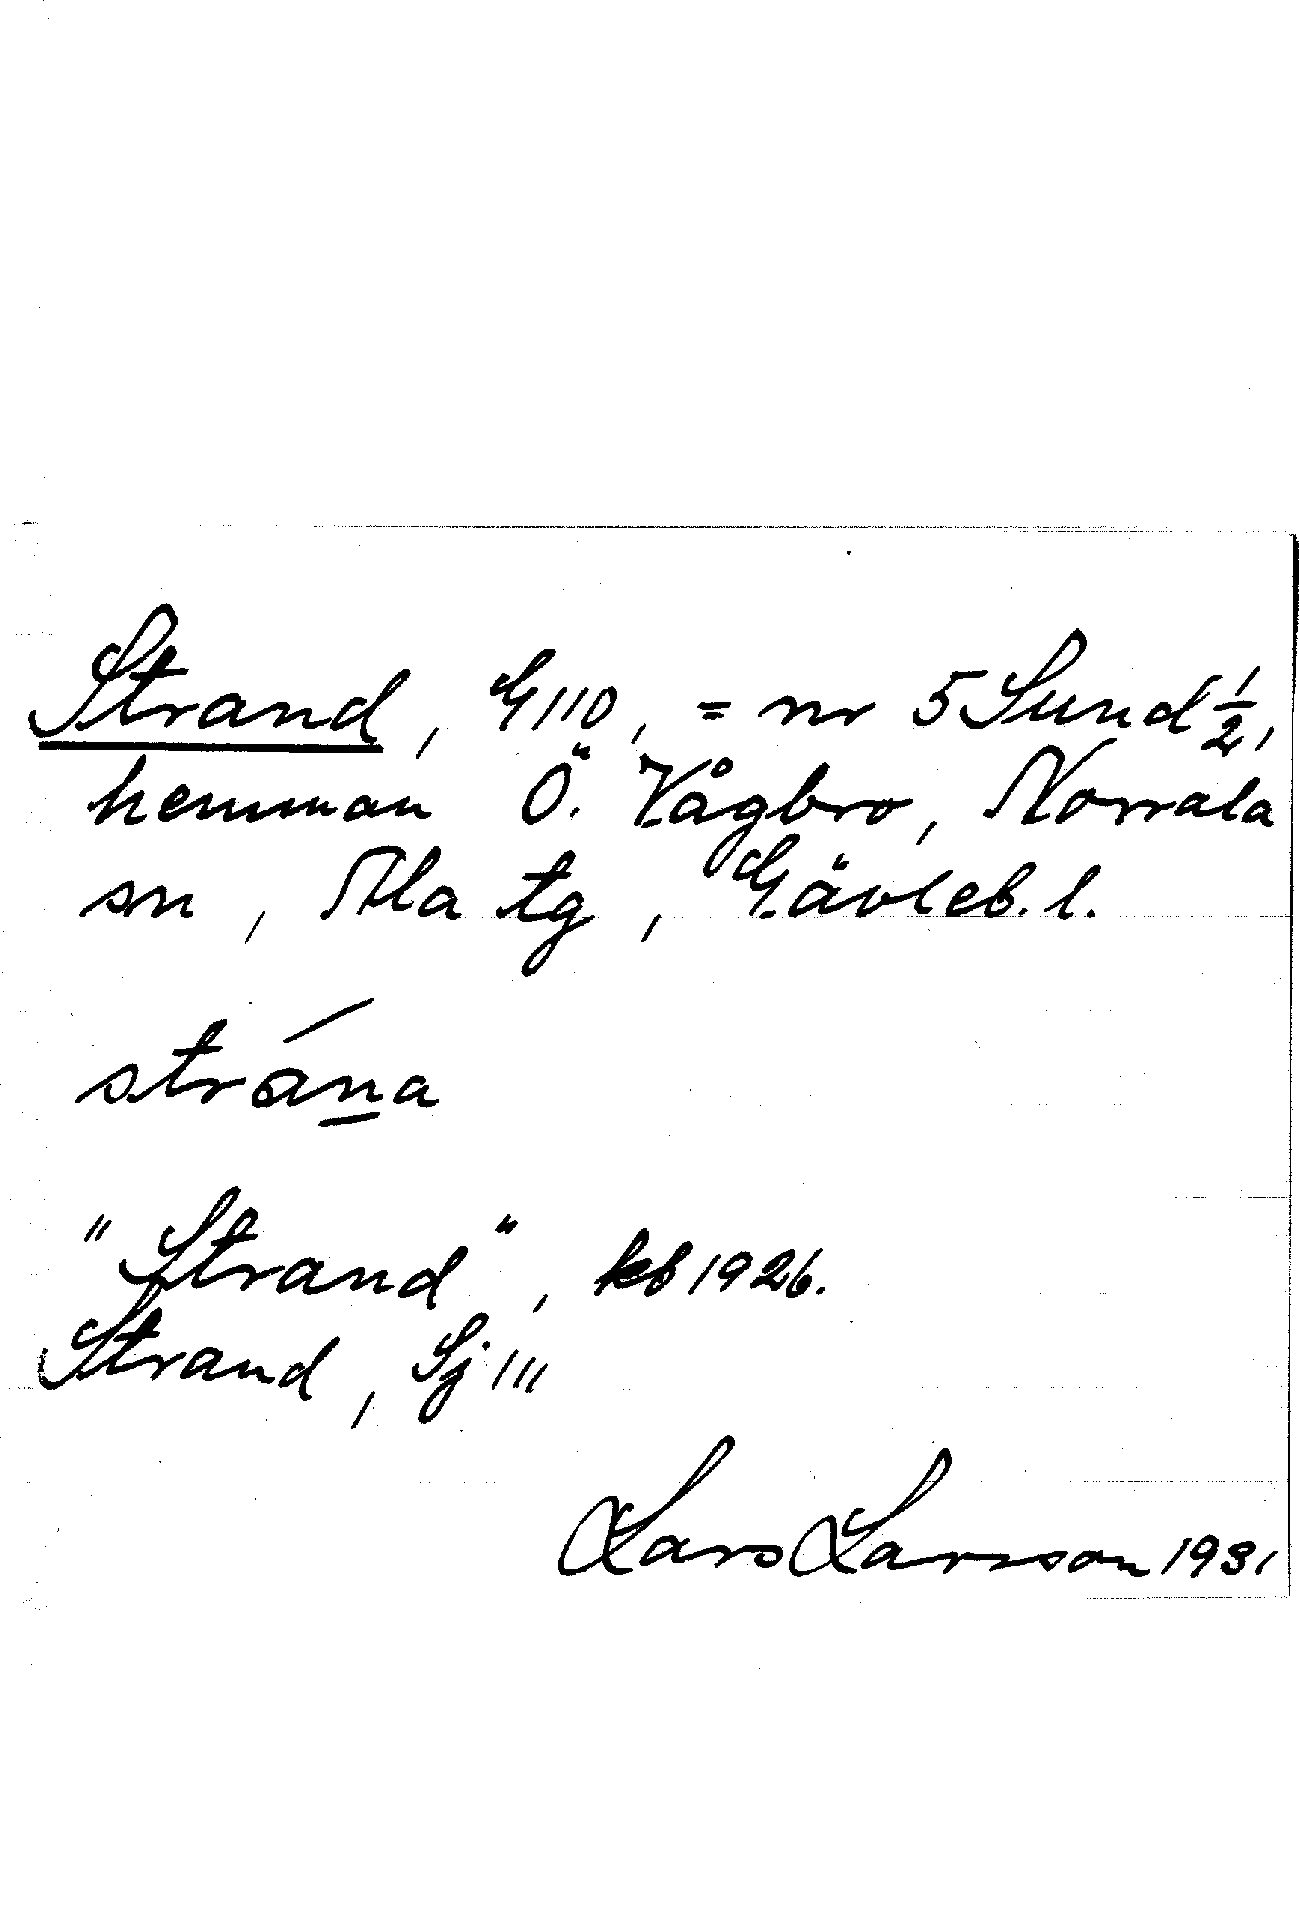 Strand, G 110, = nr 5 Sund ½,
hemman Ö. Vågbro, Norrala
sn, Ala tg, Gävleb. l.
strána
"Strand", kb 1926.
Strand, Sj 111
Lars Larsson 1931